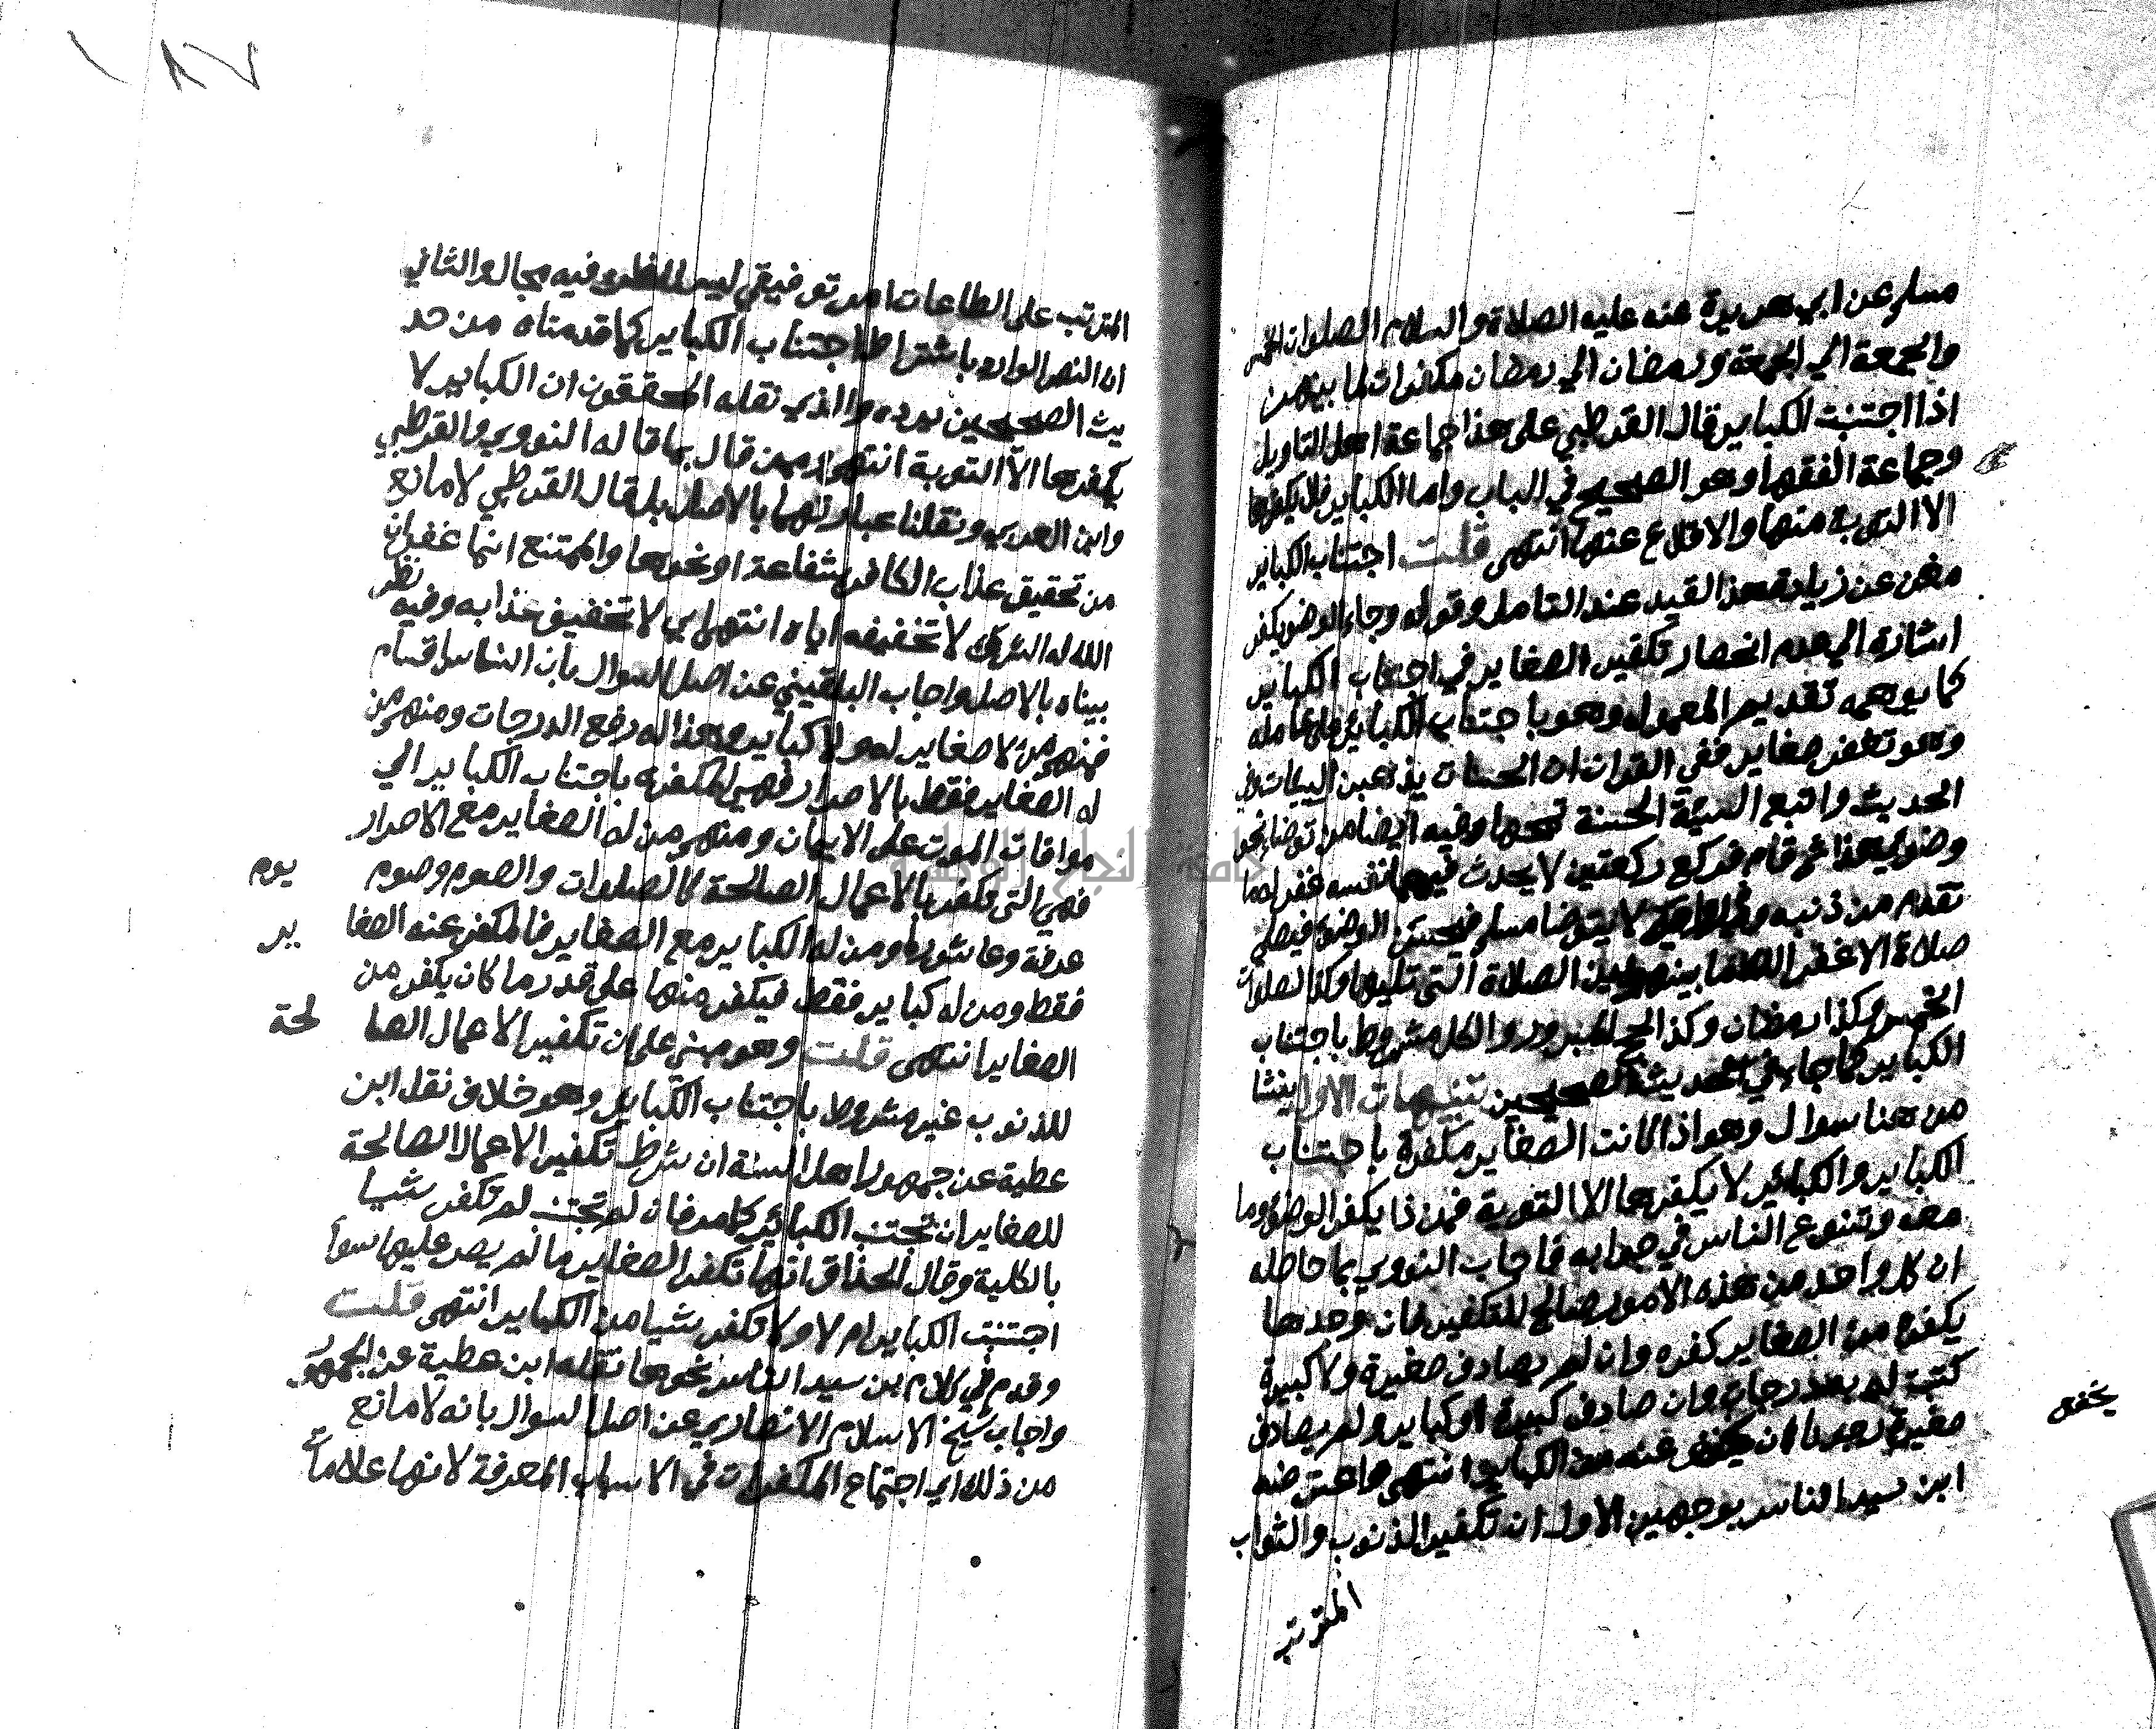 مسلم عن ابي هريرة عنه عليه الصلاة والسلام الصلوات الخمس
والجمعة الي الجمعة ورمضان الي رمضان مكفرات لما بينهن
اذا اجتنبت الكباير قال القرطبي على هذا جماعة اهل التاويل
وجماعة الفقها وهو الصحيح في الباب واما الكباير فلا يكفرها
الا التوبة منها والاقلاع عنها انتهى قلت اجتناب الكباير
مغن عن زيادة هذا القيد عند التامل وقوله وجاء الوضو يكفر
اشارة الي عدم انحصار تكفير الصغاير في اجتناب الكباير
كما يوهمه تقديم المعمول وهو باجتناب الكبائر على عامله
وهو تغفر صغاير ففي القران ان الحسنات يذهبن السيات وفي
الحديث واتبع السيئة الحسنة تمحها وفيه ايضا من توضا نحو
وضوئي هذا ثم قام فركع ركعتين لا يحدث فيهما نفسه غفر له ما
تقدم من ذنبه لا يتوضا مسلم فيحسن الوضوء فيصلي
صلاة الا غفر الله ما بينه وبين الصلاة التي تليها وكذا الصلوات
الخمس وكذا رمضان وكذا الحج المبرور والكل مشروط باجتناب
الكباير كما جاء في حديث الصحيحين تنبيهات الاول ينشا
من هنا سوال وهو اذا كانت الصغاير مكفرة باجتناب
الكباير والكبائر لا يكفرها الا التوبة فمن ذا يكفر الوضوء وما
معه وتنوع الناس في جوابه فاجاب النووي بما حاصله
ان كل واحد من هذه الامور صالح للتكفير فان وجد ما
يكفره من الصغاير كفره وان لم يصادف صغيرة ولا كبيرة
كتبت له به درجات وان صادف كبيرة او كباير ولم يصادف
صغيرة رجونا ان يخفف عنه من الكباير انتهى واعترضه
يخفف
ابن سيد الناس بوجهين الاول ان تكفير الذنوب والثواب
المترتب
١٨٧
المترتب على الطاعات امر توفيقي ليس للنظر فيه مجال والثاني
ان النص الوارد باشتراط اجتناب الكباير كما قدمناه من حد
يث الصحيحين يرده والذي نقله المحققون ان الكباير لا
يكفرها الا التوبة انتهى وممن قال بما قاله النووي والقرطبي
وابن العربي ونقلنا عبارتهما بالاصل بل قال القرطبي لا مانع
من تخفيف عذاب الكافر بشفاعة او نحوها والممتنع انما غفران
الله له الشرك لا تخفيفه اياه انتهى اي لا تخفيف عذابه وفيه نظر
بيناه بالاصل واجاب البلقيني عن اصل السوال بان الناس اقسام
فمنهم من لا صغاير له ولا كباير وهذا له رفع الدرجات ومنهم من
له الصغاير فقط بلا اصرار فهي المكفرة باجتناب الكباير الي
موافات الموت على الايمان ومنهم من له الصغاير مع الاصرار
فهي التي تكفر بالاعمال الصالحة كالصلوات والصوم وصوم يوم
عرفة وعاشورا ومن له الكباير مع الصغاير فالمكفر عنه الصغا ير
فقط ومن له كباير فقط فيكفر منها على قدر ما كان يكفر من
الصغاير انتهى قلت وهو مبني على ان تكفير الاعمال الصا لحة
للذنوب غير مشروط باجتناب الكباير وهو خلاف نقل ابن
عطية عن جمهور اهل السنة ان شرط تكفير الاعمال الصالحة
للصغاير ان تجتنب الكبائر كما مر فان لم تجتنب لم تكفر شيا
بالكلية وقال الحذاق انها تكفر الصغاير ما لم يصر عليها سوا
اجتنبت الكباير ام لا ولا تكفر شيا من الكباير انتهى قلت
وقدم في كلام بن سيد الناس نحو ما نقله ابن عطية عن الجمهور
واجاب شيخ الاسلام الانصاري عن اصل السوال بانه لا مانع
من ذلك اي اجتماع المكفرات في الاسباب المعرفة لانها علامات
جامعة النجاح الوطنية